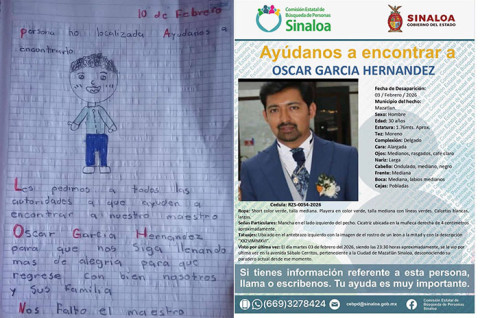 10 de Febrero
persona no localizada Ayúdanos a
encontrarlo.
Les pedimos a todas las
autoridades a que ayuden a
encontrar a nuestro maestro
Oscar Garcia Hernandez
para que nos siga llenando
mas de alegria para que
regrese con bien nosotros
y sus familia
Nos falta el maestro
Comisión Estatal de
Búsqueda de Personas
Sinaloa
SINALOA
GOBIERNO DEL ESTADO
Ayúdanos a encontrar a
OSCAR GARCIA HERNANDEZ
Fecha de Desaparición:
03 / Febrero / 2026
Municipio del hecho:
Mazatlan.
Sexo: Hombre
Edad: 30 años
Estatura: 1.76mts. Aprox.
Tez: Moreno
Complexión: Delgado
Cara: Alargada
Ojos: Medianos, rasgados, café claro
Nariz: Larga
Cabello: Ondulado, mediano, negro
Frente: Mediana
Boca: Mediana, labios medianos
Cejas: Pobladas
Cedula: RZS-0034-2026
Ropa: Short color verde, talla mediana. Playera en color verde, talla mediana con lineas verdes. Calcetas blancas,
Señas Particulares: Mancha en el lado izquierdo del pecho. Cicatriz ubicada en la muñeca derecha de 4 centimetros
aproximadamente.
Tatuajes: Ubicado en el antebrazo izquierdo con la imagen de el rostro de un león a la mitad y con la descripción
Visto por última vez: El dia martes 03 de febrero del 2026, siendo las 23:30 horas aproximadamente, se le vio por
última vez en la avenida Sábalo Cerritos, perteneciente a la Ciudad de Mazatlán Sinaloa, desconociendo su
paradero actual desde ese momento.
Si tienes información referente a esta persona,
llama o escríbenos. Tu ayuda es muy importante.
(669)3278424
cebpd@sinaloa.gob.mx
Comisión Estatal de
Búsqueda de Personas
Sinaloa